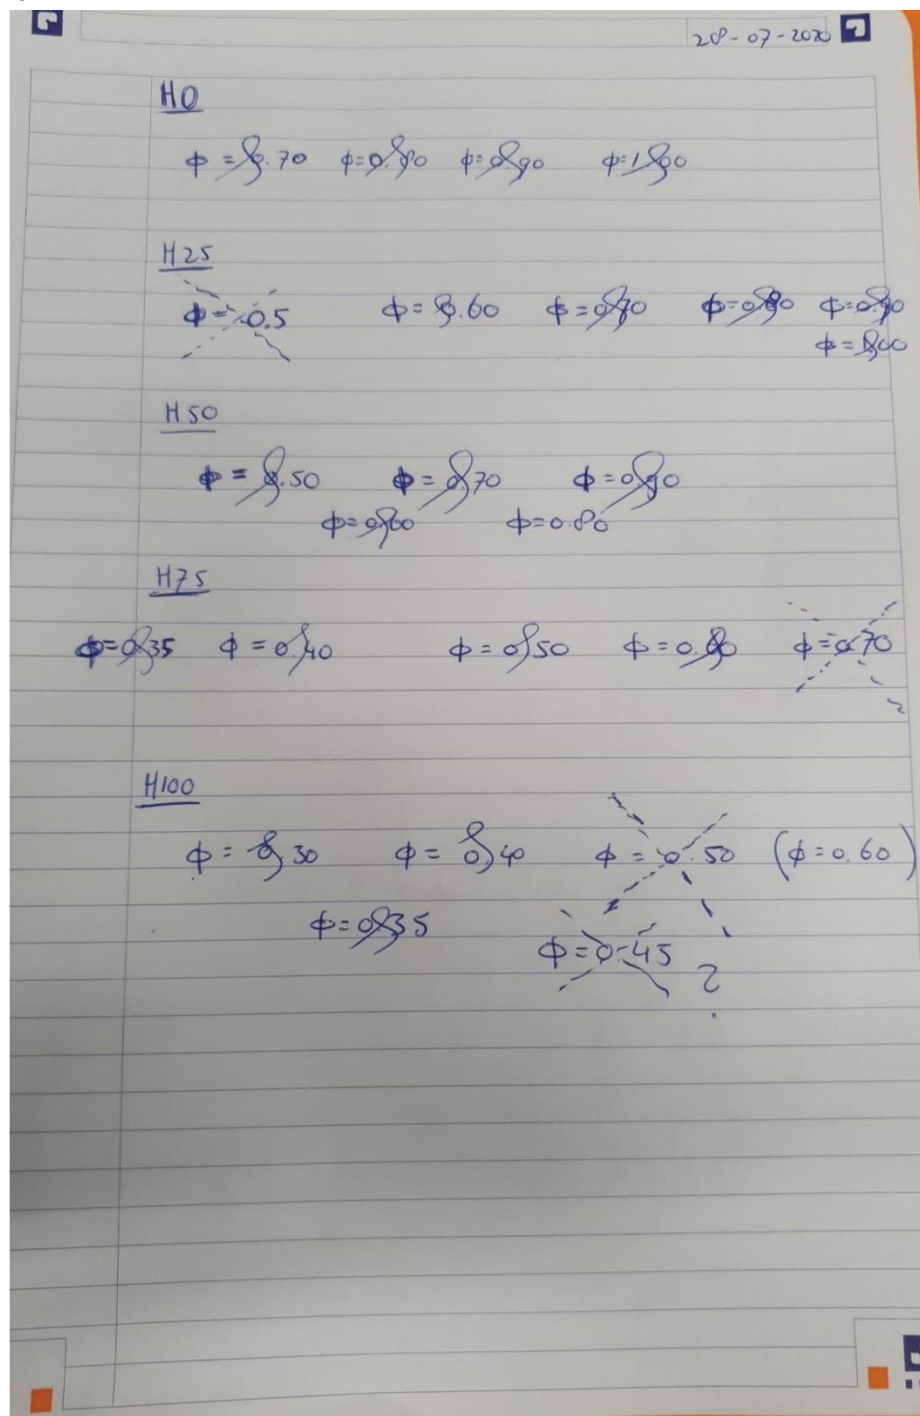 28-07-2020
H0
ϕ = 0.70 ϕ=0.80 ϕ=0.90 ϕ=1.00
H25
ϕ = 0.5 ϕ = 0.60 ϕ = 0.70 ϕ=0.80 ϕ=0.90
ϕ = 1.00
H50
ϕ = 0.50 ϕ = 0.70 ϕ = 0.90
ϕ=0.60 ϕ=0.80
H75
ϕ=0.35 ϕ = 0.40 ϕ = 0.50 ϕ = 0.60 ϕ = 0.70
?
H100
ϕ = 0.30 ϕ = 0.40 ϕ = 0.50 (ϕ=0.60)
ϕ=0.35 ϕ=0.45 ?